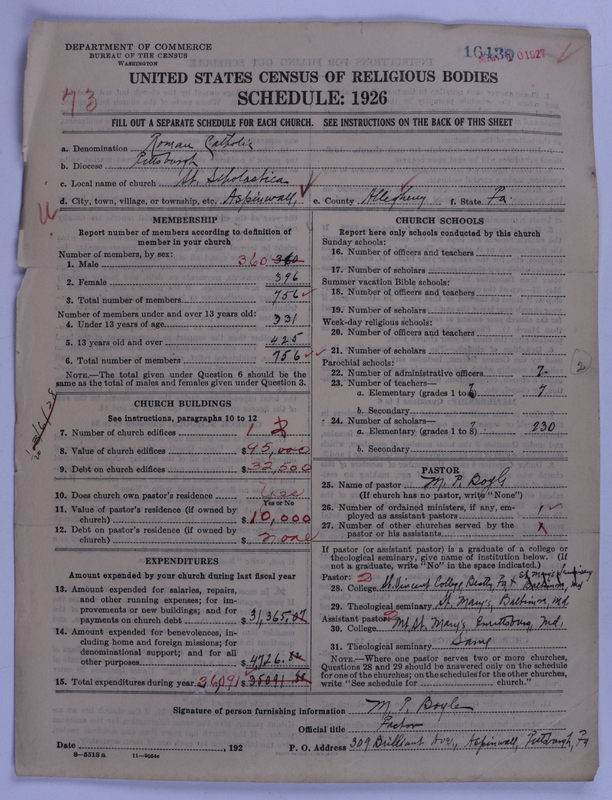 DEPARTMENT OF COMMERCE
BUREAU OF THE CENSUS
WASHINGTON
16430
1927
UNITED STATES CENSUS OF RELIGIOUS BODIES
SCHEDULE: 1926
73
FILL OUT A SEPARATE SCHEDULE FOR EACH CHURCH. SEE INSTRUCTIONS ON THE BACK OF THIS SHEET
a. Denomination Roman Catholic
b. Diocese Pittsburgh
c. Local name of church St. Scholastica
d. City, town, village, or township, etc. Aspinwall, e. County Allegheny f. State Pa.
MEMBERSHIP
Report number of members according to definition of
member in your church
Number of members, by sex:
1. Male 360 360
2. Female 396
3. Total number of members 756
Number of members under and over 13 years old:
4. Under 13 years of age 331
5. 13 years old and over 425
6. Total number of members 756
NOTE.—The total given under Question 6 should be the
same as the total of males and females given under Question 3.
CHURCH BUILDINGS
See instructions, paragraphs 10 to 12
7. Number of church edifices 1
8. Value of church edifices $95,000
9. Debt on church edifices $32,500
10. Does church own pastor's residence Yes
Yes or No
11. Value of pastor's residence (if owned by
church) $10,000
12. Debt on pastor's residence (if owned by
church) $ none
EXPENDITURES
Amount expended by your church during last fiscal year
13. Amount expended for salaries, repairs,
and other running expenses; for im-
provements or new buildings; and for
payments on church debt $31,365.07
14. Amount expended for benevolences, in-
cluding home and foreign missions; for
denominational support; and for all
other purposes $4,726.
15. Total expenditures during year 36,091 $35091
CHURCH SCHOOLS
Report here only schools conducted by this church
Sunday schools:
16. Number of officers and teachers
17. Number of scholars
Summer vacation Bible schools:
18. Number of officers and teachers
19. Number of scholars
Week-day religious schools:
20. Number of officers and teachers
21. Number of scholars
Parochial schools:
22. Number of administrative officers 2
23. Number of teachers—
a. Elementary (grades 1 to 8) 7
b. Secondary
24. Number of scholars—
a. Elementary (grades 1 to 8) 230
b. Secondary
PASTOR
25. Name of pastor M. P. Boyle
(If church has no pastor, write "None")
26. Number of ordained ministers, if any, em-
ployed as assistant pastors 1
27. Number of other churches served by the
pastor or his assistants
If pastor (or assistant pastor) is a graduate of a college or
theological seminary, give name of institution below. (If
not a graduate, write "No" in the space indicated.)
Pastor: 2 St. Mary's Seminary
28. College St. Vincent College, Beatty, Pa & Baltimore, Md
29. Theological seminary St. Mary's, Baltimore, Md
Assistant pastor: 2
30. College Mt. St. Mary's Emmitsburg, Md,
31. Theological seminary Same
NOTE.—Where one pastor serves two or more churches,
Questions 28 and 29 should be answered only on the schedule
for one of the churches; on the schedules for the other churches,
write "See schedule for church."
Signature of person furnishing information M. P. Boyle
Official title Pastor
Date , 192 P. O. Address 309 Brilliant Ave., Aspinwall, Pittsburgh, Pa
8—5518a 11—9084a